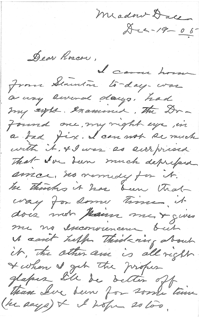 Meadow Dale
Dec - 19 - 05
Dear Roscoe,
I came home
from Staunton to-day. was
away several days. had
my eyes examined. the Dr.
found one, my right eye, in
a bad fix. I can not see much
with it. & I was so surprised
that I've been much depressed
since. no remedy for it.
he thinks it has been that
way for some time. it
does not pain me & gives
me no inconvenience but
I can't help thinking about
it, the other one is all right
& when I get the proper
glasses I'll be better off
than I've been for some time
(he says) & I hope so too.